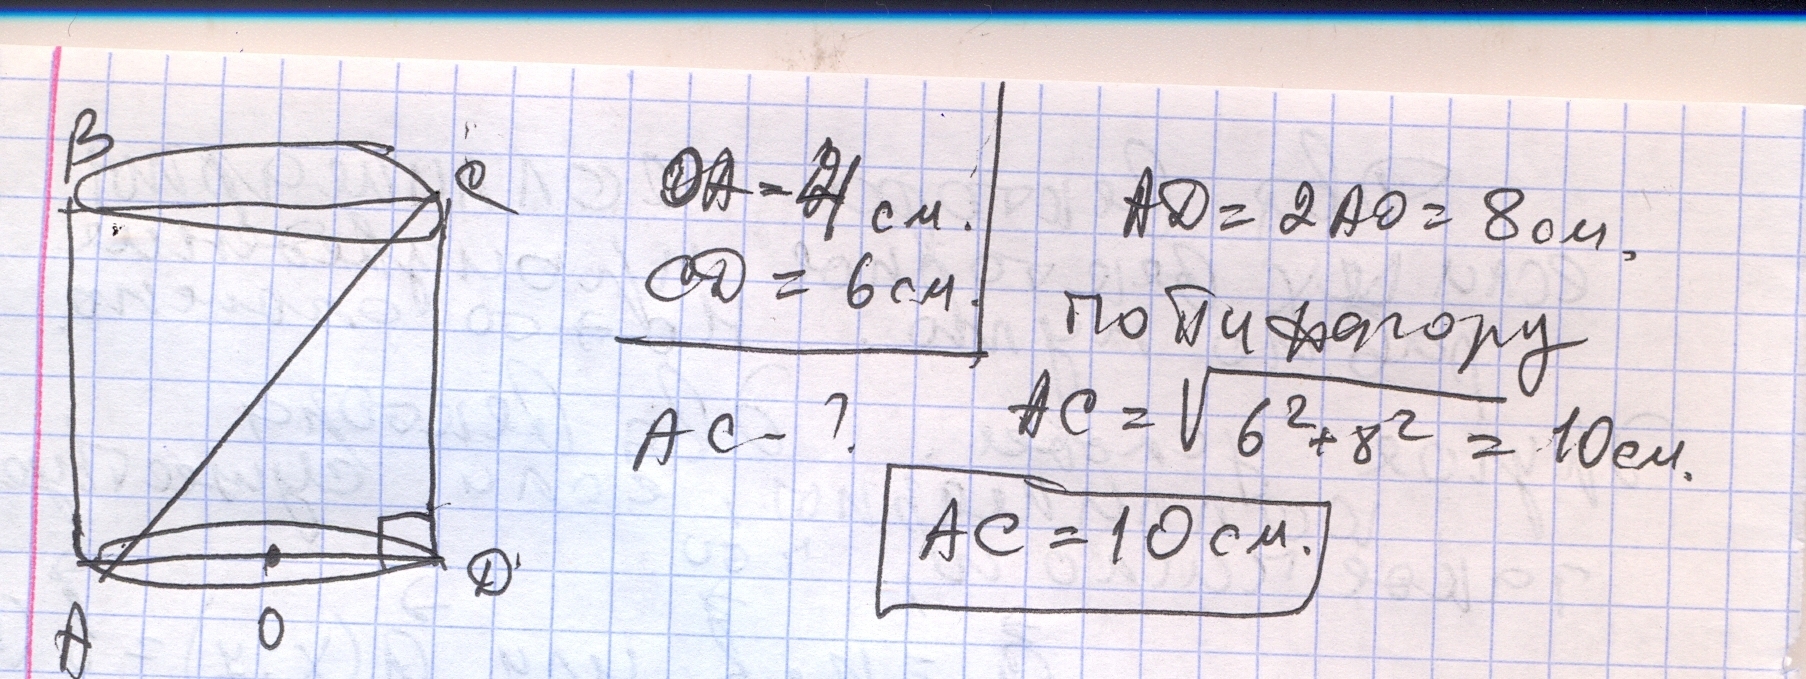 B
C
A
O
D
OA = 4 см.
CD = 6 см.
AC - ?
AD = 2AO = 8 см.
По Пифагору
AC = √6²+8² = 10 см.
AC = 10 см.